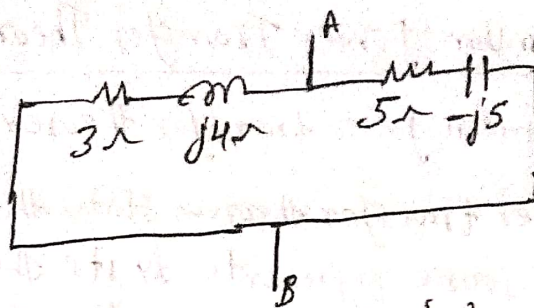 A
3Ω j4Ω 5Ω -j5
B